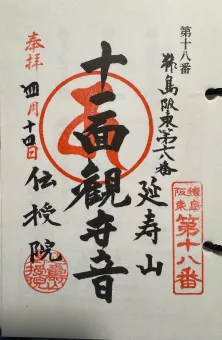 第十八番
猿島阪東第十八番
延寿山
十一面觀世音
奉拝
四月十四日
伝授院
猿島
阪東
第十八番